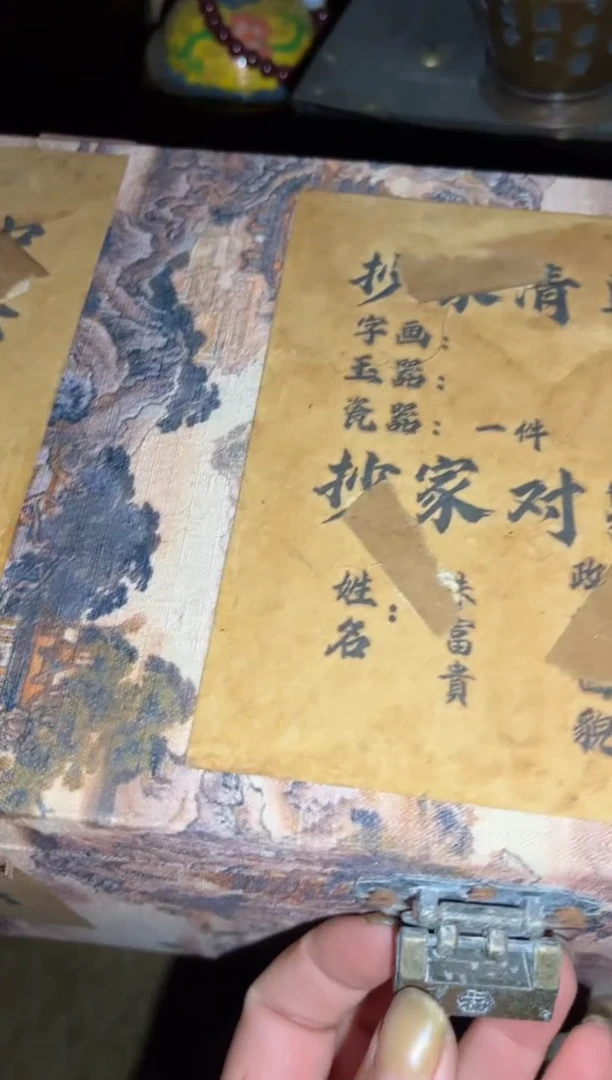 抄家清
字画：
玉器：
瓷器：一件
抄家对
姓名：
富貴
政
貌